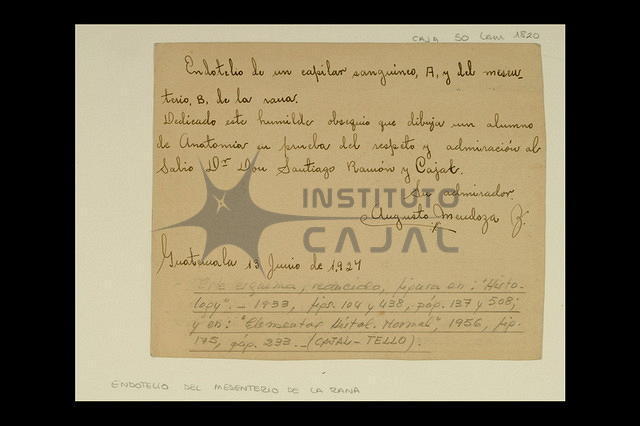 CAJA 50 Lam 1820
Endotelio de un capilar sanguineo, A, y del mesen-
terio, B, de la rana.
Dedicado este humilde obsequio que dibuja un alumno
de Anatomía en prueba del respeto y admiración al
Sabio Dr Don Santiago Ramón y Cajal.
Su admirador.
Augusto Mendoza
Guatemala 13 Junio de 1,927
INSTITUTO
CAJAL
Este esquema, reducido, figura en: "Histo-
logy". - 1933, figs. 104 y 438, pág. 137 y 508;
y en: "Elementos Histol. Normal", 1956, fig.
175, pág. 233. - (CAJAL - TELLO).
ENDOTELIO DEL MESENTERIO DE LA RANA